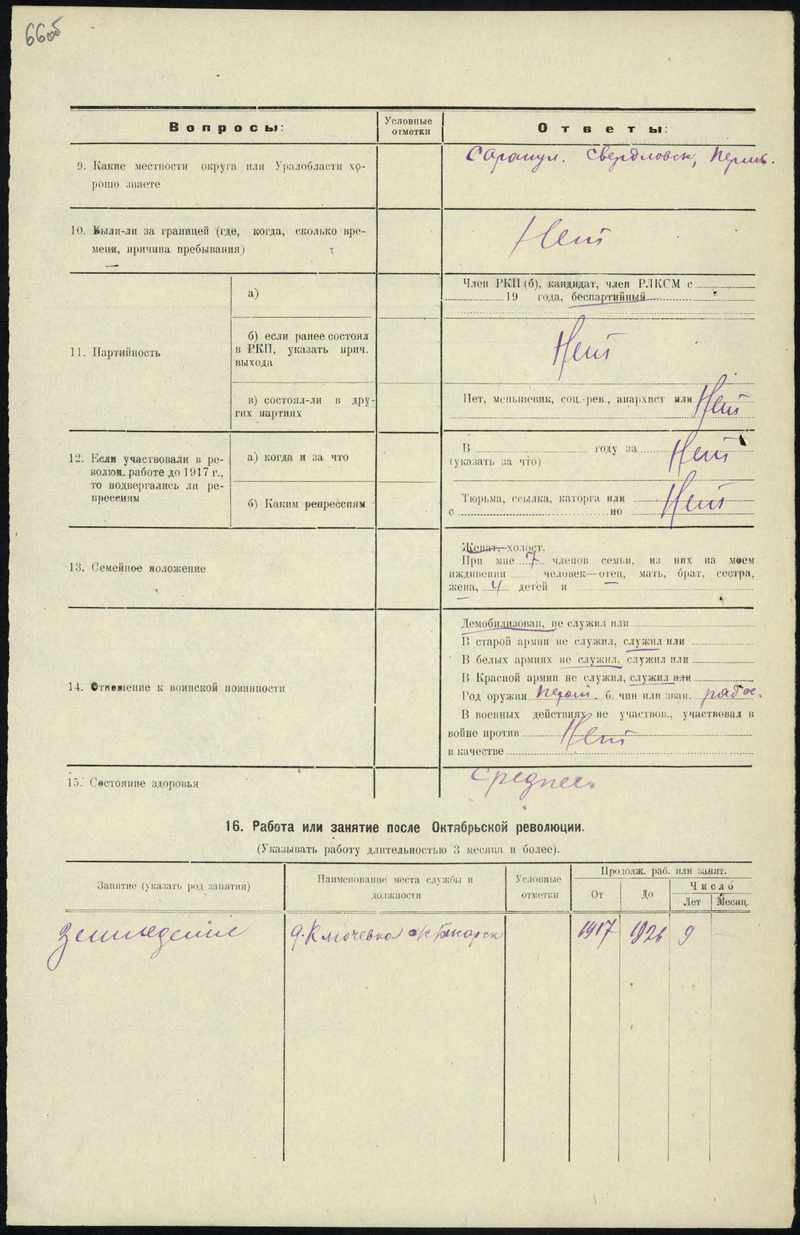 66об
Вопросы:
Условные
отметки
Ответы:
9. Какие местности округа или Уралобласти хо-
рошо знаете
Сарапул. Свердловск, Пермь.
10. Были-ли за границей (где, когда, сколько вре-
мени, причина пребывания)
Нет
11. Партийность
а)
Член РКП (б), кандидат, член РЛКСМ с
19 года, беспартийный
б) если ранее состоял
в РКП, указать прич.
выхода
Нет
в) состоял-ли в дру-
гих партиях
Нет, меньшевик, соц.-рев., анархист или Нет
12. Если участвовали в ре-
волюц. работе до 1917 г.,
то подвергались ли ре-
прессиям
а) когда и за что
В году за Нет
(указать за что)
б) Каким репрессиям
Тюрьма, ссылка, каторга или Нет
с по
13. Семейное положение
Женат, холост.
При мне 7 членов семьи, из них на моем
иждивении человек—отец, мать, брат, сестра,
жена, 4 детей и —
14. Отношение к воинской повинности
Демобилизован, не служил или
В старой армии не служил, служил или
В белых армиях не служил, служил или
В Красной армии не служил, служил или
Род оружия б. чин или зван.
В военных действиях не участвов., участвовал в
войне против Нет
в качестве
15. Состояние здоровья
Среднее
16. Работа или занятие после Октябрьской революции.
(Указывать работу длительностью 3 месяца и более).
Занятие (указать род занятия)
Наименование места службы и
должности
Условные
отметки
Продолж. раб. или занят.
От
До
Число
Лет
Месяц.
д. Ключевка
1917
1926
9